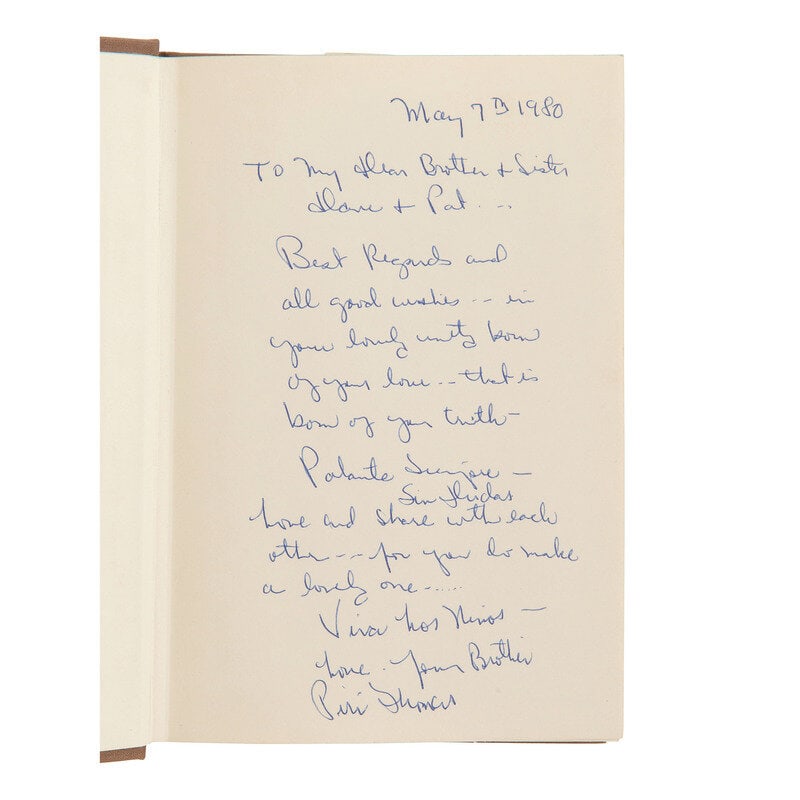 May 7th 1980
To My Dear Brother & Sister
Dave & Pat...
Best Regards and
all good wishes -- in
your lovely unity born
of your love -- that is
born of your truth -
Palante Siempre -
Sin Dudas
Love and share with each
other --- for you do make
a lovely one ......
Viva Los Ninos -
Love. Your Brother
Piri Thomas